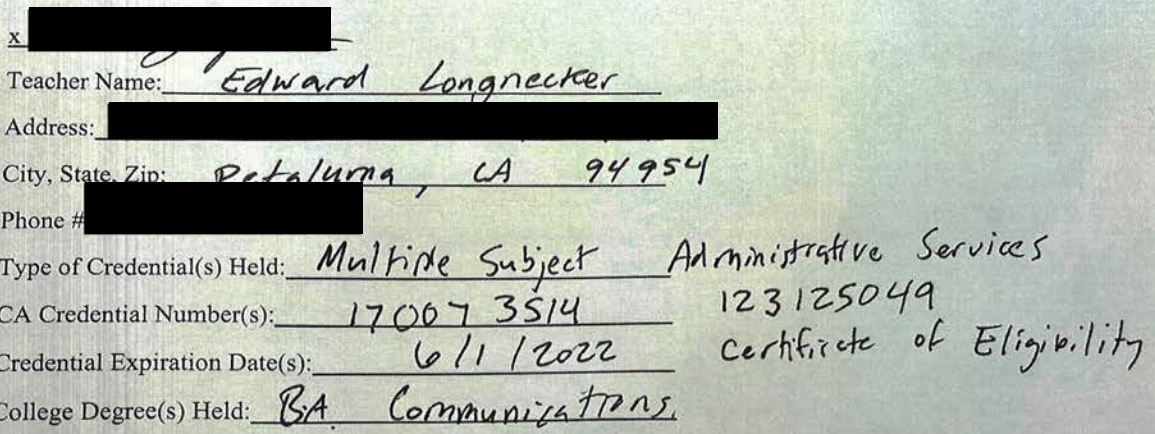 x
Teacher Name: Edward Longnecker
Address:
City, State, Zip: Petaluma, CA 94954
Phone #
Type of Credential(s) Held: Multiple Subject Administrative Services
CA Credential Number(s): 170073514 123125049
Credential Expiration Date(s): 6/1/2022 Certificate of Eligibility
College Degree(s) Held: B.A. Communications